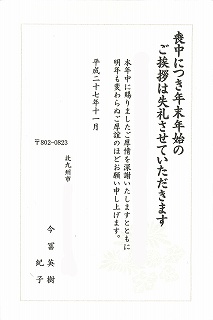 喪中につき年末年始の
ご挨拶は失礼させていただきます
本年中に賜りましたご厚情を深謝いたしますとともに
明年も変わらぬご厚誼のほどお願い申し上げます。
平成二十七年十一月
〒802-0823
北九州市
今冨英樹
紀子